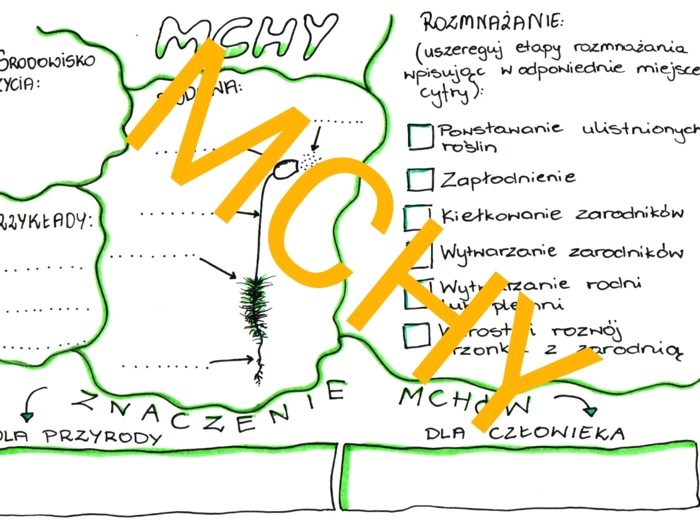 MCHY
ŚRODOWISKO
ŻYCIA:
BUDOWA:
PRZYKŁADY:
ROZMNAŻANIE:
(uszereguj etapy rozmnażania
wpisując w odpowiednie miejsce
cyfry):
Powstawanie ulistnionych
roślin
Zapłodnienie
Kiełkowanie zarodników
Wytwarzanie zarodników
Wytwarzanie rodni
lub plemni
Wzrost i rozwój
trzonka z zarodnią
MCHY
ZNACZENIE MCHÓW
DLA PRZYRODY
DLA CZŁOWIEKA